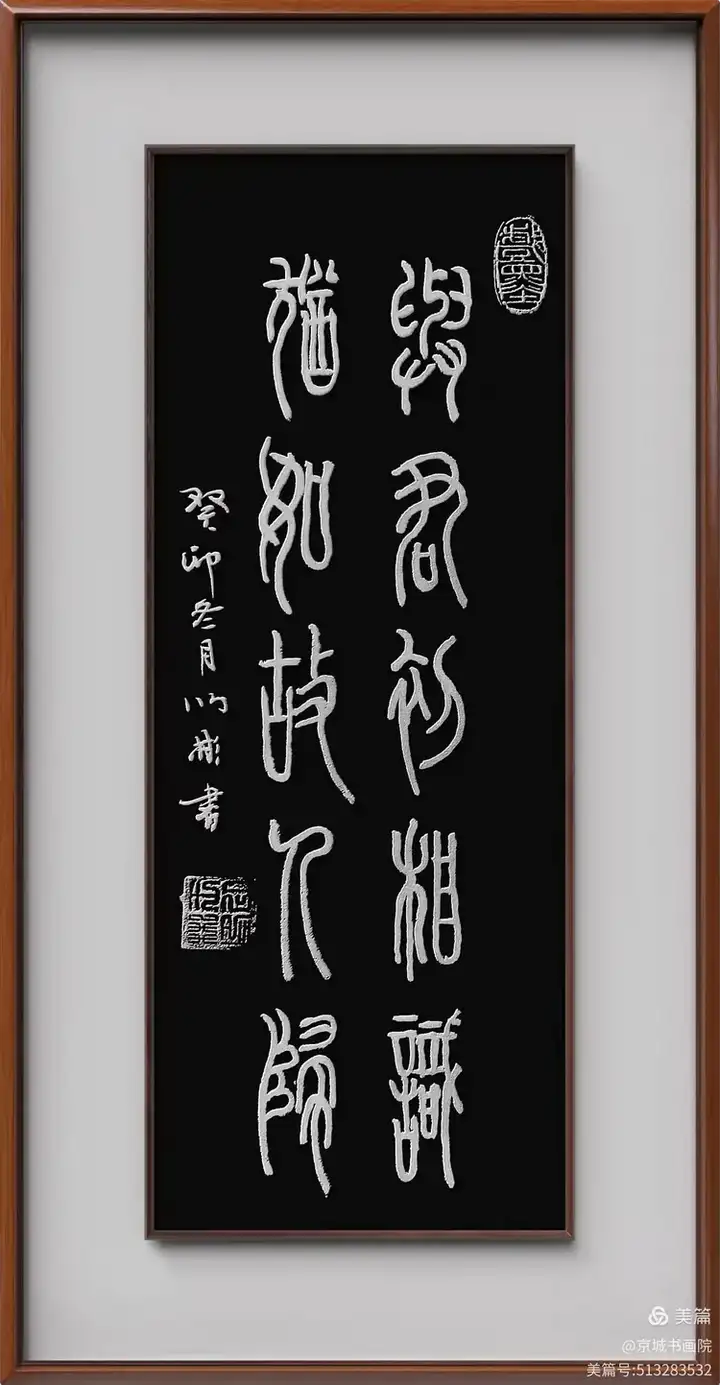 與君初相識
猶如故人歸
癸卯冬月 彬書
美篇
@京城书画院
美篇号:513283532